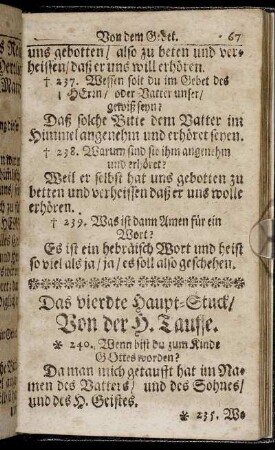 Von dem Gebet. 67
uns gebotten / also zu beten und ver-
heissen / daß er uns will erhören.
† 237. Wessen solt du im Gebet des
HErrn / oder Vatter unser /
gewiß seyn?
Daß solche Bitte dem Vatter im
Himmel angenehm und erhöret seyen.
† 238. Warum sind sie ihm angenehm
und erhöret?
Weil er selbst hat uns gebotten zu
betten und verheissen daß er uns wolle
erhören.
† 239. Was ist dann Amen für ein
Wort?
Es ist ein hebräisch Wort und heist
so viel als ja / ja / es soll also geschehen.
Das vierdte Haupt-Stuck /
Von der H. Tauffe.
* 240. Wenn bist du zum Kinde
GOttes worden?
Da man mich getaufft hat im Na-
men des Vatters / und des Sohnes /
und des H. Geistes.
* 235. Wo